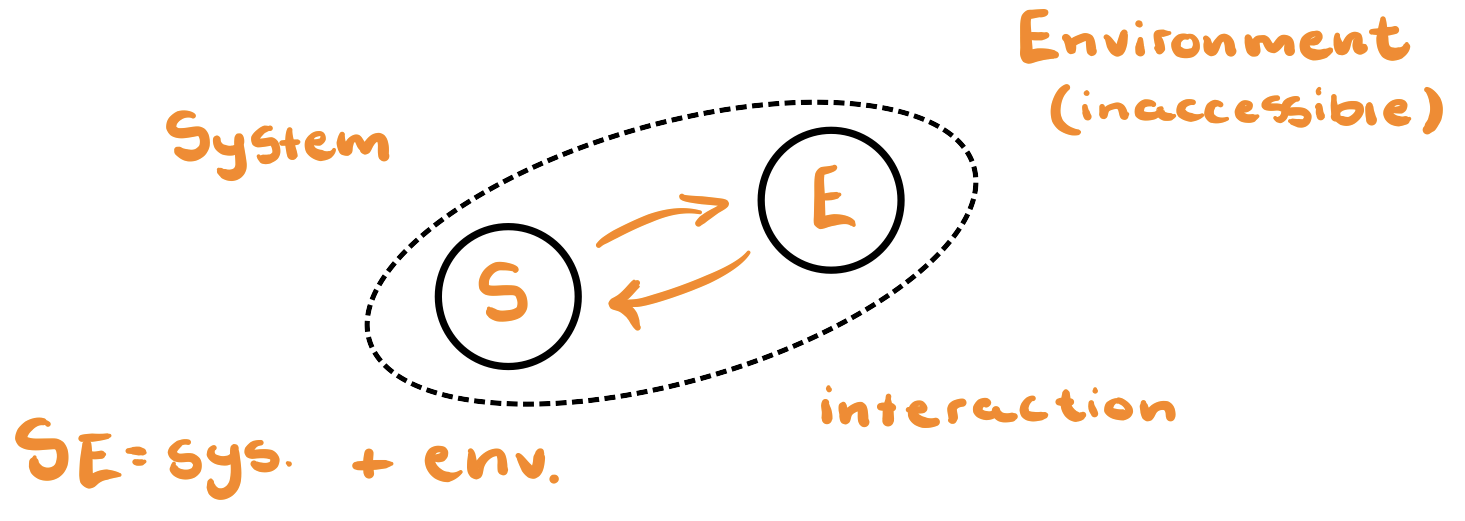 Environment
(inaccessible)
System
E
S
interaction
SE = sys. + env.